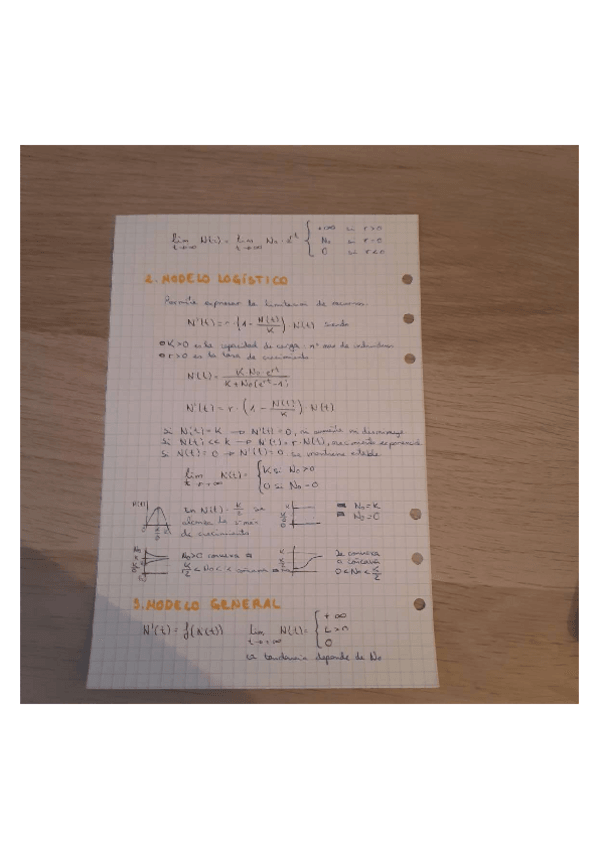 lim N(t) = lim N₀ · e^rt { +∞ si r>0
t→∞ t→∞ N₀ si r=0
0 si r<0
2. MODELO LOGÍSTICO
Permite expresar la limitación de recursos.
N'(t) = r (1 - N(t)/K) · N(t) siendo
K>0 es la capacidad de carga: nº max de individuos
r>0 es la tasa de crecimiento
N(t) = K · N₀ · e^rt / K + N₀(e^rt - 1)
N'(t) = r · (1 - N(t)/K) · N(t)
Si N(t) = K → N'(t) = 0, ni aumenta ni disminuye
Si N(t) << K → N'(t) = r · N(t), crecimiento exponencial
Si N(t) = 0 → N'(t) = 0 se mantiene estable
lim N(t) = { K si N₀>0
t→∞ 0 si N₀=0
N'(t) En N(t) = K/2 se K N₀=K
alcanza la N₀=0
de crecimiento
0 K/2 K
N₀>K convexa Se convexa
K/2 < N₀ < K cóncava a cóncava
0<N₀<K/2
3. MODELO GENERAL
N'(t) = f(N(t)) lim N(t) = { +∞
t→∞ L>0
0
La tendencia depende de N₀